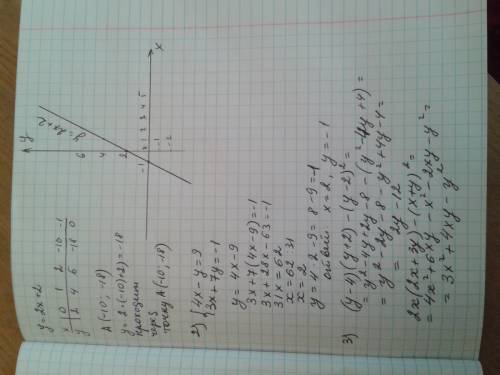 y = 2x+2
x | 0 1 2 -10 -1
y | 2 4 6 -18 0
A(-10; -18)
y = 2·(-10)+2 = -18
проходит
через
точку A(-10; -18)
y
6
4
2
y=2x+2
-1 1 2 3 4 5
x
-1
-2
2) { 4x - y = 9
3x + 7y = -1
y = 4x - 9
3x + 7(4x-9) = -1
3x + 28x - 63 = -1
31x = 62
x = 62:31
x = 2
y = 4·2-9 = 8-9 = -1
ответ: x = 2, y = -1
3) (y-4)(y+2) - (y-2)² =
= y² - 4y + 2y - 8 - (y² - 4y + 4) =
= y² - 2y - 8 - y² + 4y - 4 =
= 2y - 12
2x(2x+3y) - (x+y)² =
= 4x² + 6xy - x² - 2xy - y² =
= 3x² + 4xy - y²